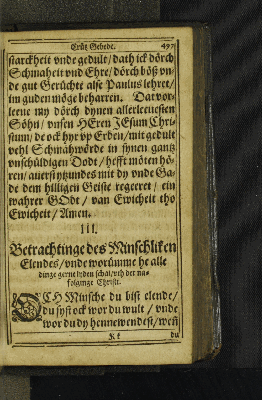 Crütz Gebede. 497
starckheit vnde gedult / dath ick dörch
Schmaheit vnd Ehre / dörch böß vn-
de gut Gerüchte alse Paulus lehret /
im guden möge beharren. Dat vor-
leene my dörch dynen allerleevesten
Söhn / vnsen HEren JEsum Chri-
stum / de ock hyr vp Erden / mit gedult
vehl Schmähwörde in synen gantz
vnschüldigen Dodt / hefft möten hö-
ren / auerst ytzundes mit dy vnde Ga-
de dem hilligen Geiste regeret / ein
wahrer GOdt / van Ewicheit tho
Ewicheit / Amen.
III.
Betrachtinge des Minschliken
Elendes / vnde worümme he alle
dinge gerne lyden schal / vth der na-
folginge Christi.
OCH Minsche du bist elende /
du syst ock wor du wult / vnde
wor du dy hennewendest / weñ
du